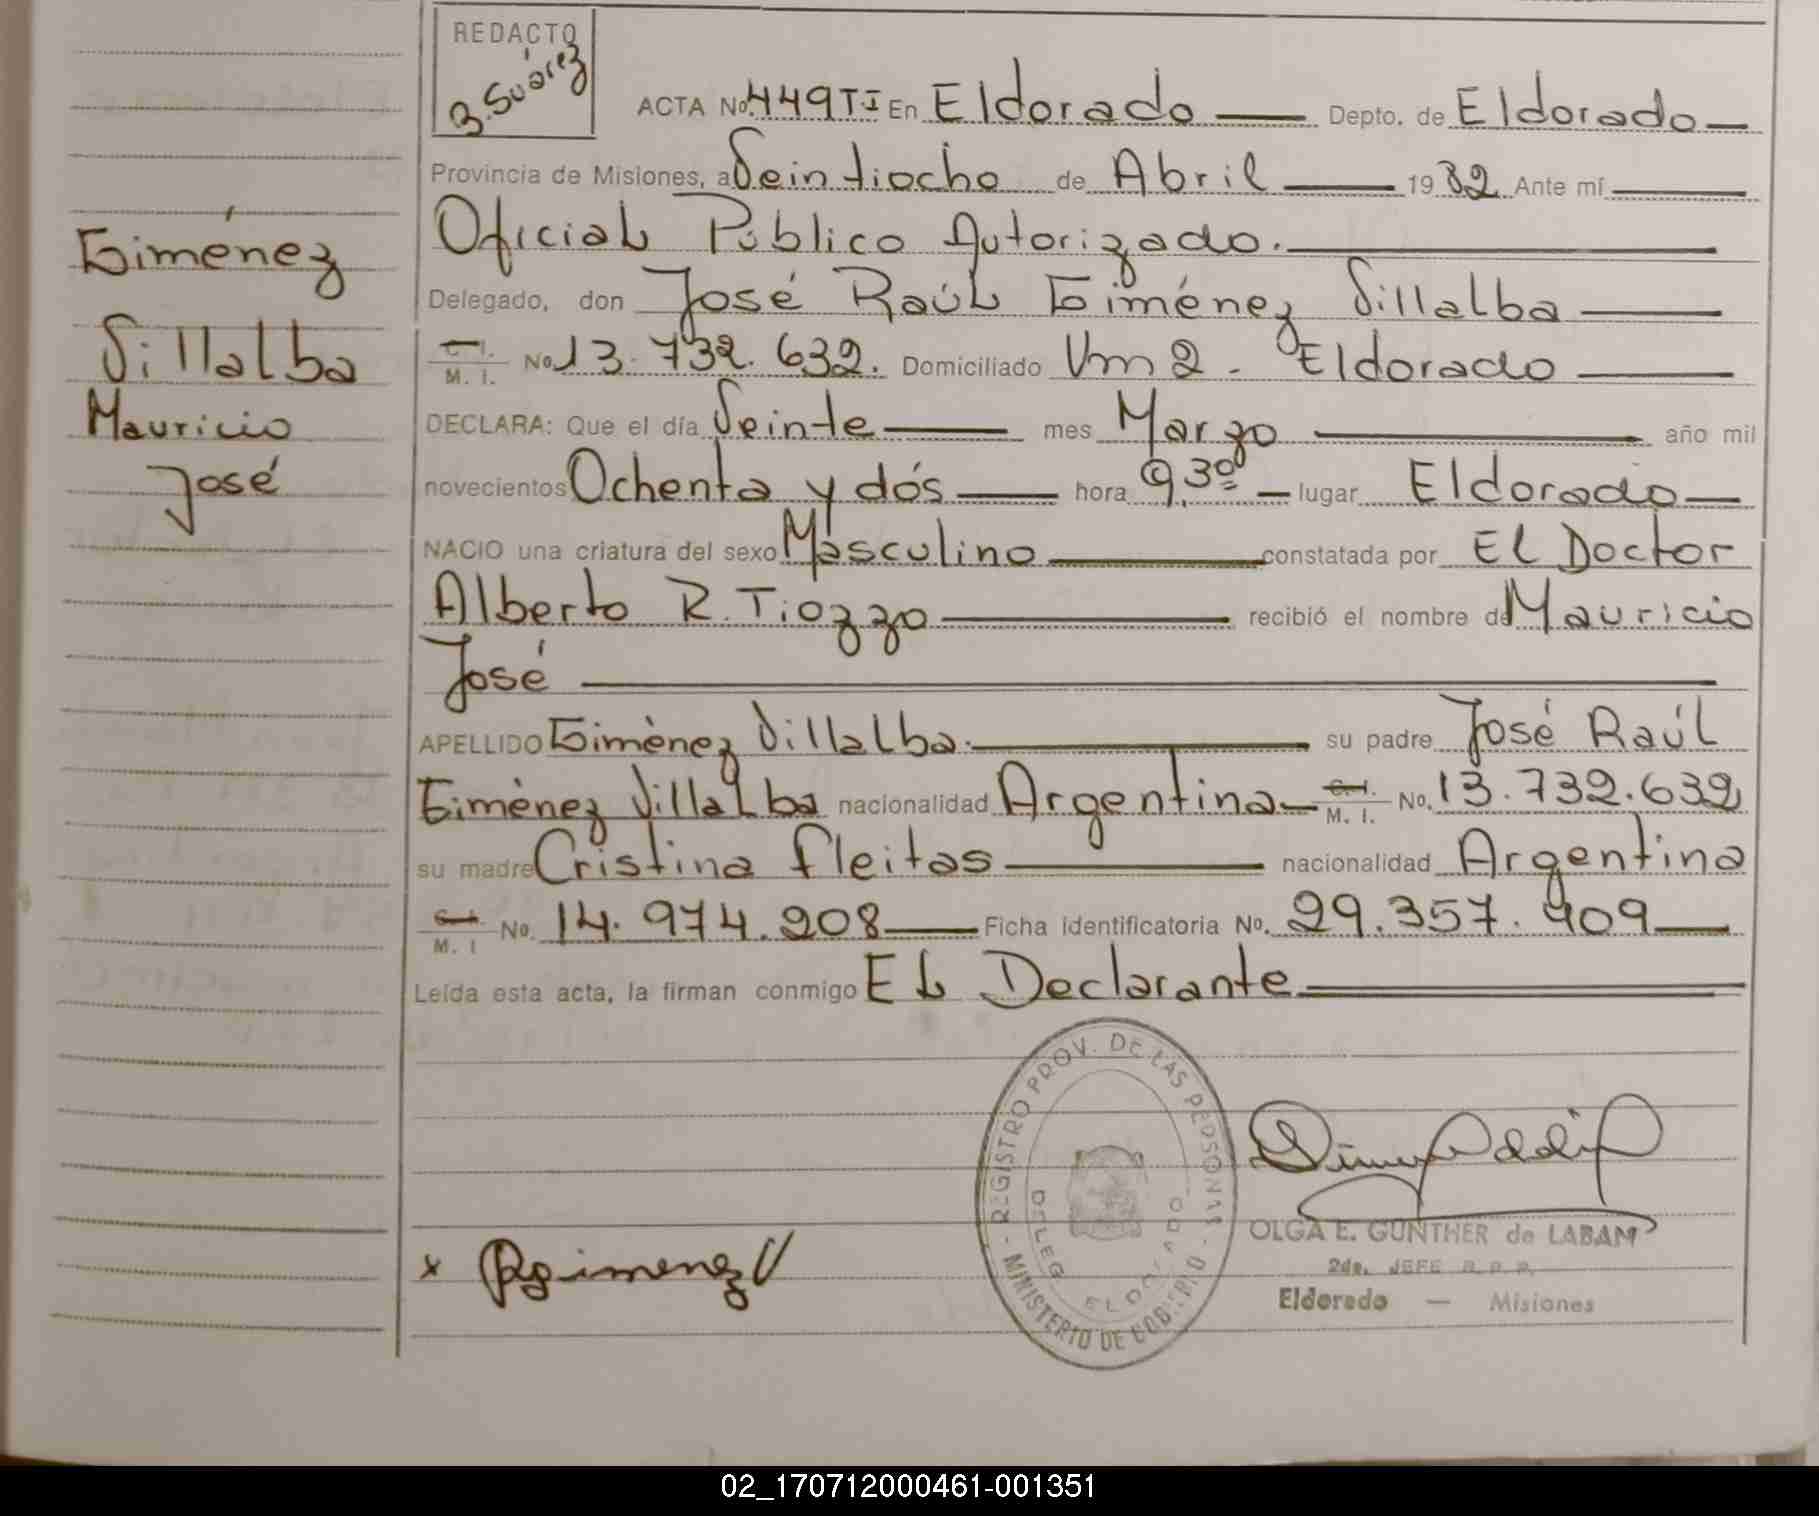 REDACTO
B. Suárez
ACTA No. 449 TI En Eldorado Depto. de Eldorado
Provincia de Misiones, a Veintiocho de Abril 1982 Ante mí
Oficial Público Autorizado.
Delegado, don José Raúl Giménez Villalba
C. I. M. I. No. 13.732.632. Domiciliado Km 2. Eldorado
DECLARA: Que el día Veinte mes Marzo año mil
novecientos Ochenta y dós hora 9,30 lugar Eldorado
NACIO una criatura del sexo Masculino constatada por El Doctor
Alberto R. Tiozzo recibió el nombre de Mauricio
José
APELLIDO Giménez Villalba. su padre José Raúl
Giménez Villalba nacionalidad Argentina C. I. M. I. No. 13.732.632
su madre Cristina Fleitas nacionalidad Argentina
C. I. M. I No. 14.974.208 Ficha identificatoria No. 29.357.909
Leída esta acta, la firman conmigo El Declarante
Giménez
Villalba
Mauricio
José
REGISTRO PROV. DE LAS PERSONAS - MINISTERIO DE GOBIERNO -
DELEG ELDORADO
OLGA E. GUNTHER de LABAM
2da. JEFE R. P. P.
Eldorado — Misiones
x RGimenezV
02_170712000461-001351